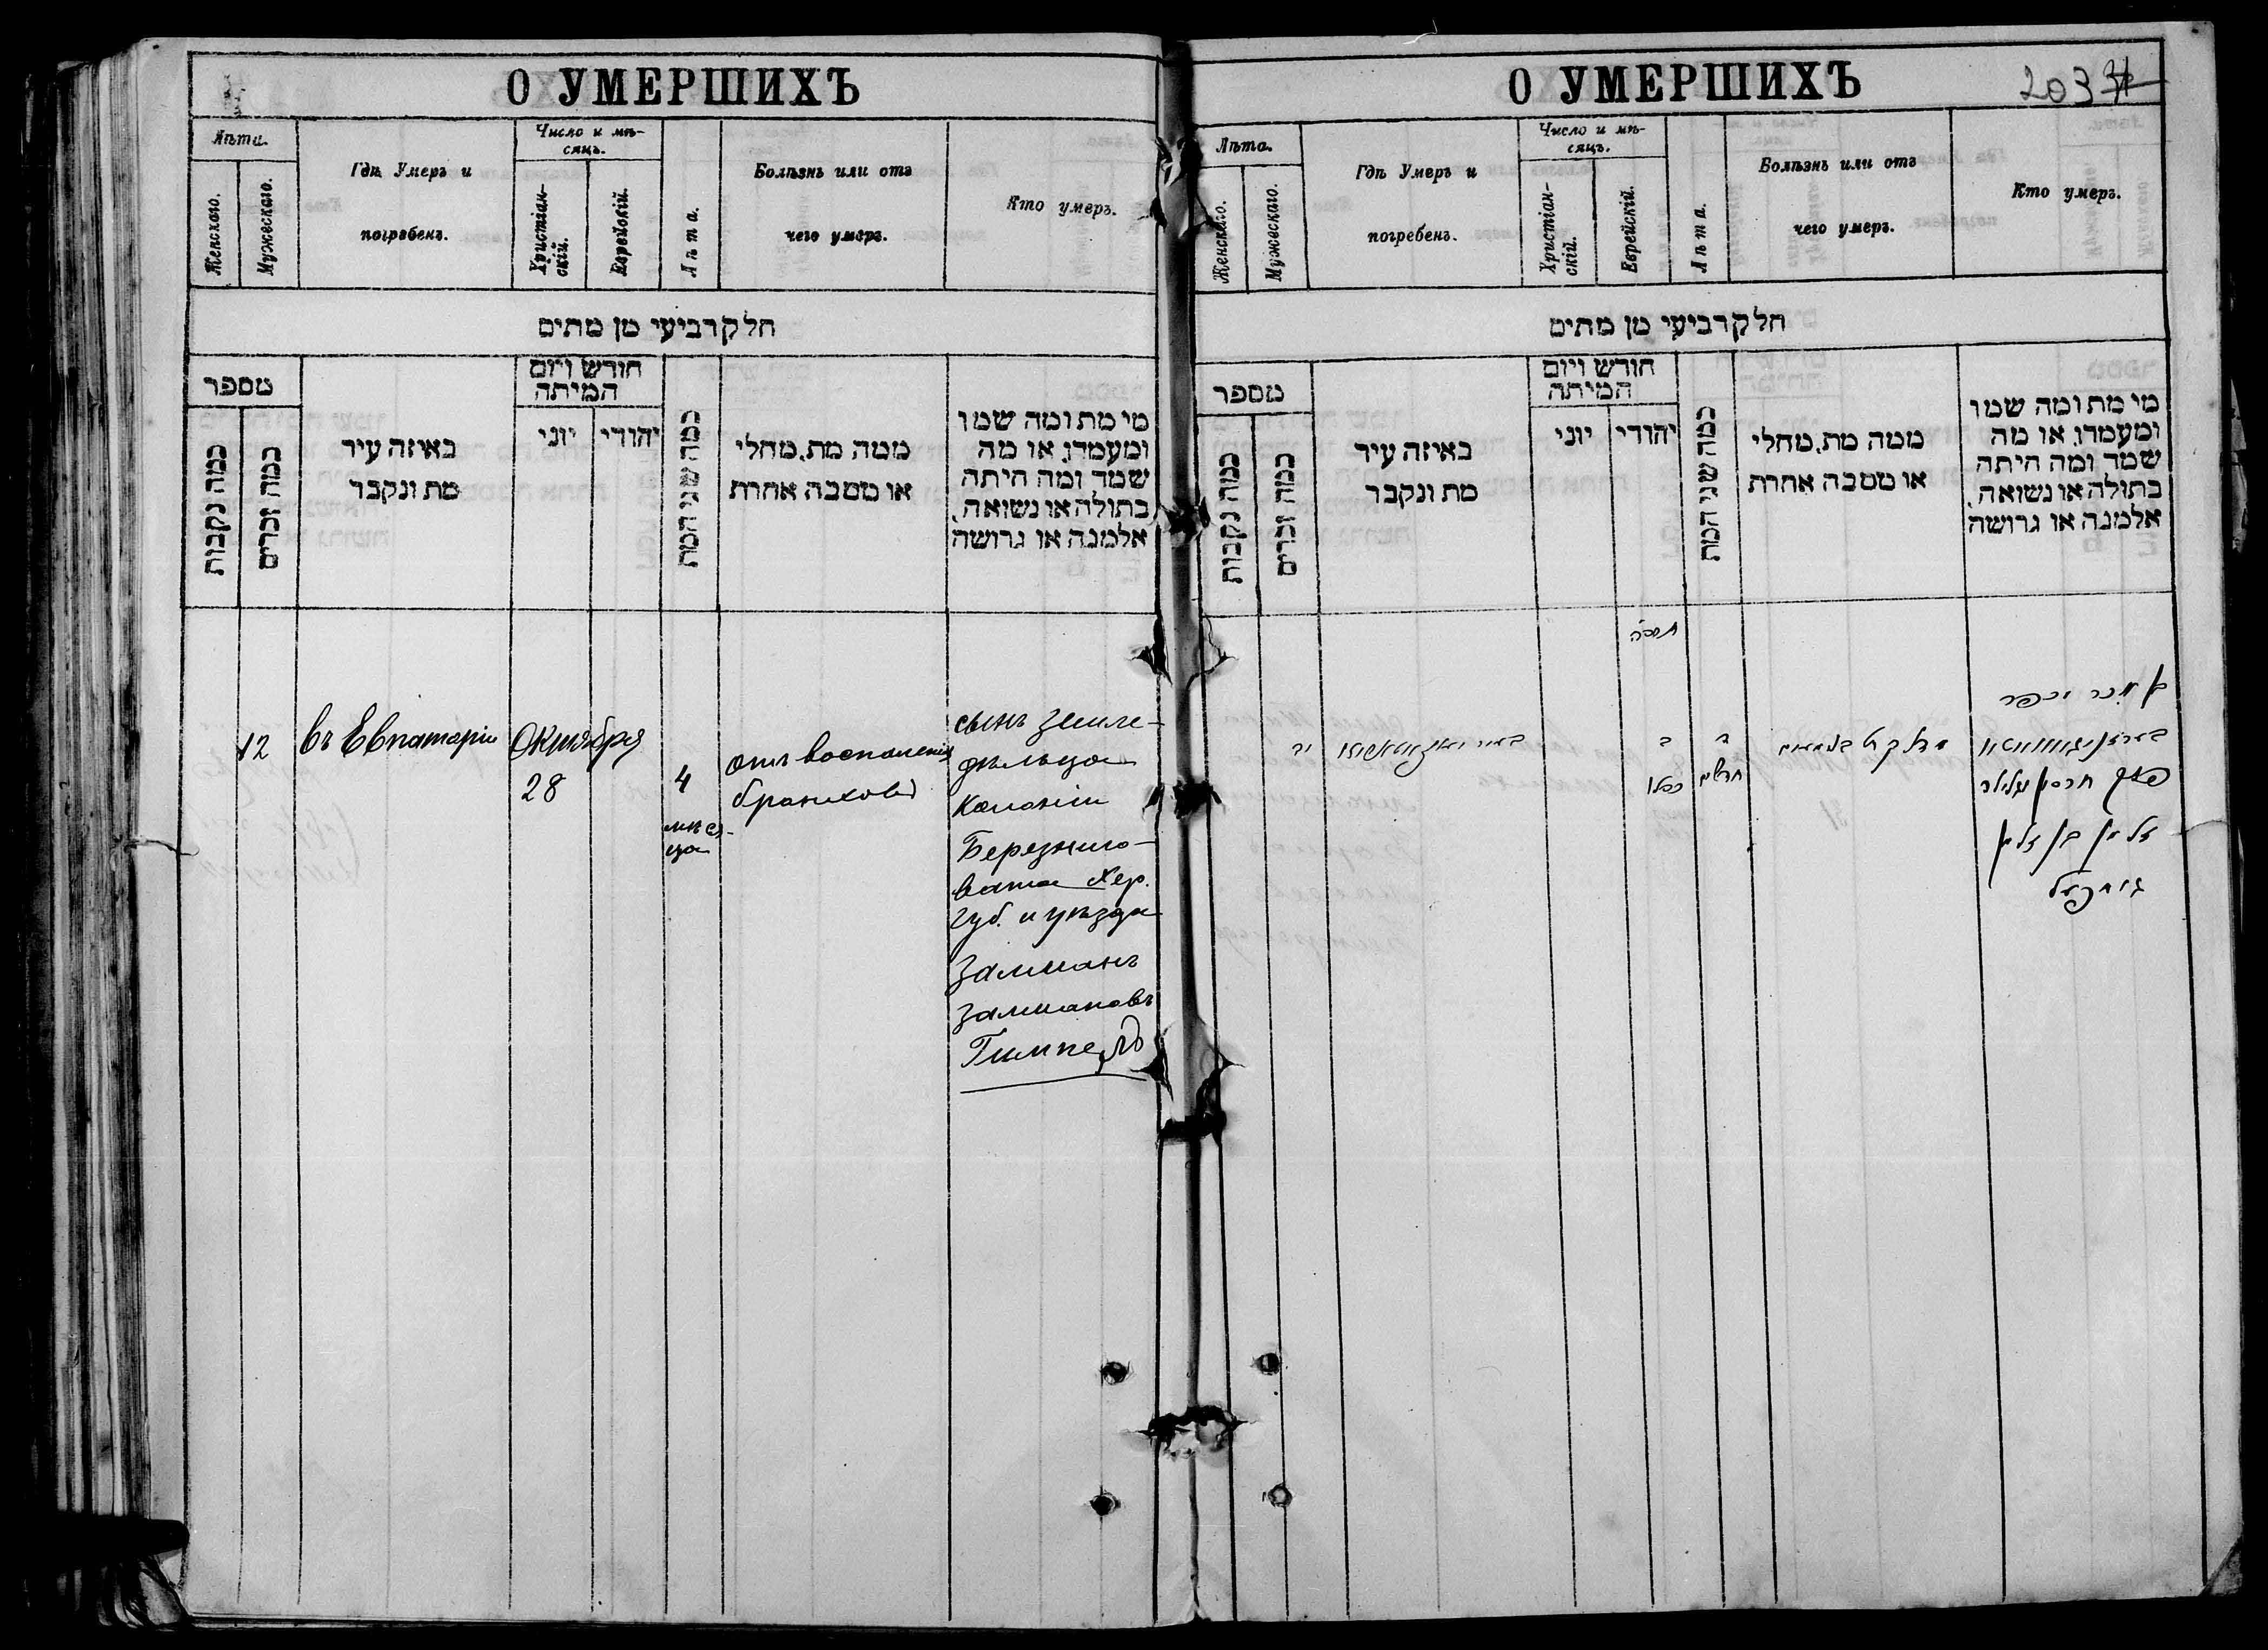 О УМЕРШИХЪ
Лѣта.
Женскаго.
Мужескаго.
Гдѣ Умеръ и
погребенъ.
Число и мѣ-
сяцъ.
Христіан-
скій.
Еврейскій.
Лѣта.
Болѣзнь или отъ
чего умеръ.
Кто умеръ.
חלק רביעי מן מתים
מספר
כמה נקבות
כמה זכרים
באיזה עיר
מת ונקבר
חודש ויום
המיתה
יוני
יהודי
כמה שני המת
ממה מת, מחלי
או מסבה אחרת
מי מת ומה שמו
ומעמדו, או מה
שמה ומה היתה
בתולה או נשואה,
אלמנה או גרושה
12
въ Евпаторіи
Октября
28
4
мѣся-
ца
отъ воспаленія
бронховъ
сынъ земле-
дѣльца
колоніи
Березнего-
вата Хер.
губ. и уѣзда
Залманъ
Залмановъ
Гимпель
О УМЕРШИХЪ
203
Лѣта.
Женскаго.
Мужескаго.
Гдѣ Умеръ и
погребенъ.
Число и мѣ-
сяцъ.
Христіан-
скій.
Еврейскій.
Лѣта.
Болѣзнь или отъ
чего умеръ.
Кто умеръ.
חלק רביעי מן מתים
מספר
כמה נקבות
כמה זכרים
באיזה עיר
מת ונקבר
חודש ויום
המיתה
יוני
יהודי
כמה שני המת
ממה מת, מחלי
או מסבה אחרת
מי מת ומה שמו
ומעמדו, או מה
שמה ומה היתה
בתולה או נשואה,
אלמנה או גרושה
יב
ב
כסלו
ד
חדשים
בן
זלמן בן זלמן
גימפעל